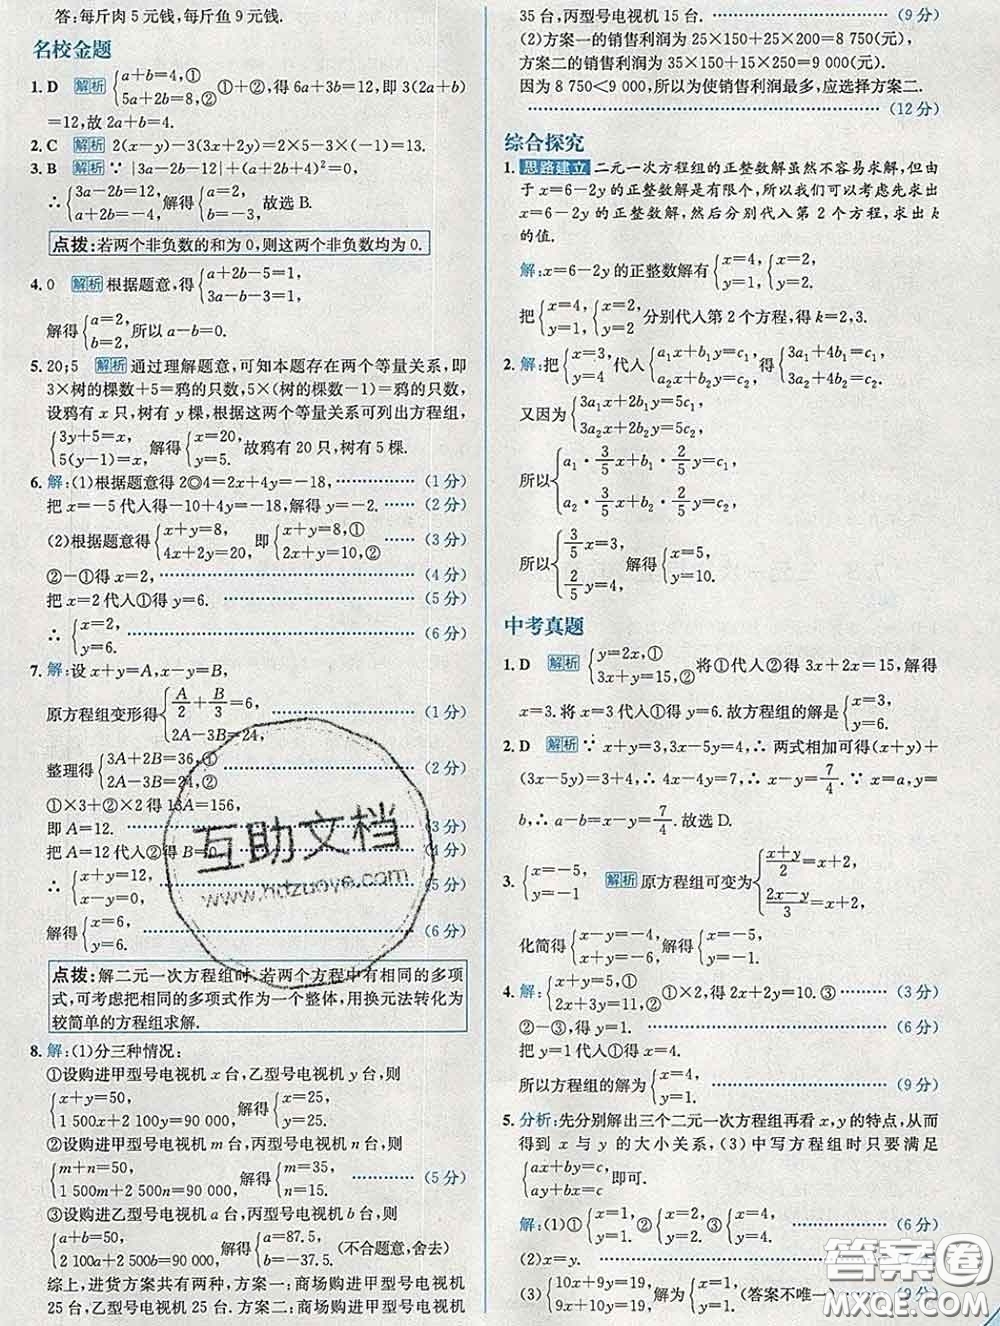 答:每斤肉 5 元钱,每斤鱼 9 元钱.
名校金题
1. D 解析 {a+b=4,① 5a+2b=8,② ①+②,得 6a+3b=12,即 3(2a+b)
=12,故 2a+b=4.
2. C 解析 2(x-y)-3(3x+2y)=2×5-3×(-1)=13.
3. B 解析 ∵ |3a-2b-12|+(a+2b+4)²=0,
∴ {3a-2b=12, a+2b=-4, 解得 {a=2, b=-3, 故选 B.
点拨:若两个非负数的和为 0,则这两个非负数均为 0.
4. 0 解析 根据题意,得 {a+2b-5=1, 3a-b-3=1,
解得 {a=2, b=2, 所以 a-b=0.
5. 20;5 解析 通过理解题意,可知本题存在两个等量关系,即
3×树的棵数+5=鸦的只数,5×(树的棵数-1)=鸦的只数,
设鸦有 x 只,树有 y 棵,根据这两个等量关系可列出方程组,
{3y+5=x, 5(y-1)=x, 解得 {x=20, y=5, 故鸦有 20 只,树有 5 棵.
6. 解:(1)根据题意得 2◎4=2x+4y=-18, (1 分)
把 x=-5 代入得-10+4y=-18,解得 y=-2. (2 分)
(2)根据题意得 {x+y=8, 4x+2y=20, 即 {x+y=8,① 2x+y=10,② (3 分)
②-①得 x=2, (4 分)
把 x=2 代入①得 y=6. (5 分)
∴ {x=2, y=6. (6 分)
7. 解:设 x+y=A,x-y=B,
原方程组变形得 {A/2+B/3=6, 2A-3B=24, (1 分)
整理得 {3A+2B=36,① 2A-3B=24,② (2 分)
①×3+②×2 得 13A=156,
即 A=12. (3 分)
把 A=12 代入②得 B=0. (4 分)
∴ {x+y=12, x-y=0, (5 分)
解得 {x=6, y=6. (6 分)
点拨:解二元一次方程组时,若两个方程中有相同的多项
式,可考虑把相同的多项式作为一个整体,用换元法转化为
较简单的方程组求解.
8. 解:(1)分三种情况:
①设购进甲型号电视机 x 台,乙型号电视机 y 台,则
{x+y=50, 1 500x+2 100y=90 000, 解得 {x=25, y=25.
②设购进甲型号电视机 m 台,丙型号电视机 n 台,则
{m+n=50, 1 500m+2 500n=90 000, 解得 {m=35, n=15. (5 分)
③设购进乙型号电视机 a 台,丙型号电视机 b 台,则
{a+b=50, 2 100a+2 500b=90 000, 解得 {a=87.5, b=-37.5, (不合题意,舍去)
综上,进货方案共有两种,方案一:商场购进甲型号电视机
25 台,乙型号电视机 25 台. 方案二:商场购进甲型号电视机
35 台,丙型号电视机 15 台. (9 分)
(2)方案一的销售利润为 25×150+25×200=8 750(元),
方案二的销售利润为 35×150+15×250=9 000(元).
因为 8 750<9 000,所以为使销售利润最多,应选择方案二.
(12 分)
综合探究
1. 思路建立 二元一次方程组的正整数解虽然不容易求解,但由
于 x=6-2y 的正整数解是有限个,所以我们可以考虑先求出
x=6-2y 的正整数解,然后分别代入第 2 个方程,求出 k
的值.
解:x=6-2y 的正整数解有 {x=4, y=1, {x=2, y=2.
把 {x=4, y=1, {x=2, y=2 分别代入第 2 个方程,得 k=2,3.
2. 解:把 {x=3, y=4 代入 {a₁x+b₁y=c₁, a₂x+b₂y=c₂, 得 {3a₁+4b₁=c₁, 3a₂+4b₂=c₂.
又因为 {3a₁x+2b₁y=5c₁, 3a₂x+2b₂y=5c₂,
所以 {a₁·3/5x+b₁·2/5y=c₁, a₂·3/5x+b₂·2/5y=c₂,
所以 {3/5x=3, 2/5y=4, 解得 {x=5, y=10.
中考真题
1. D 解析 {y=2x,① 3x+y=15,② 将①代入②得 3x+2x=15,解得
x=3. 将 x=3 代入①得 y=6. 故方程组的解是 {x=3, y=6.
2. D 解析 ∵ x+y=3,3x-5y=4,∴ 两式相加可得(x+y)+
(3x-5y)=3+4,∴ 4x-4y=7,∴ x-y=7/4. ∵ x=a,y=
b,∴ a-b=x-y=7/4. 故选 D.
3. {x=-5, y=-1 解析 原方程组可变为 {(x+y)/2=x+2, (2x-y)/3=x+2,
化简得 {x-y=-4, x+y=-6, 解得 {x=-5, y=-1.
4. 解: {x+y=5,① 2x+3y=11,② ①×2,得 2x+2y=10. ③ (3 分)
②-③,得 y=1. (6 分)
把 y=1 代入①得 x=4.
所以方程组的解为 {x=4, y=1. (9 分)
5. 分析:先分别解出三个二元一次方程组再看 x,y 的特点,从而
得到 x 与 y 的大小关系,(3)中写方程组时只要满足
{ax+by=c, ay+bx=c 即可.
解:(1)① {x=1, y=1. ② {x=2, y=2. ③ {x=4, y=4. (6 分)
(2)x=y. (8 分)
(3) {10x+9y=19, 9x+10y=19, 解得 {x=1, y=1. (答案不唯一) (9 分)
互助文档
www.hdzuoye.com
答案圈
MXQE.COM